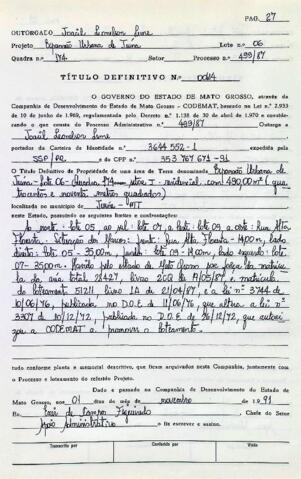 PAG. 27
OUTORGADO Josél Leonilson Lume
Projeto Expansão Urbana de Juína Lote n.o 06
Quadra n.o Setor Processo n.o 499/87
TÍTULO DEFINITIVO N.o
O GOVERNO DO ESTADO DE MATO GROSSO, através da
Companhia de Desenvolvimento do Estado de Mato Grosso - CODEMAT, baseado na Lei n.o 2.933
de 10 de junho de 1969, regulamentada pelo Decreto n.o 1.138 de 30 de abril de 1970 e consti-
dando o que consta do Processo Administrativo n.o 499/87 Outorga a
portador da Carteira de Identidade n.o 3644 552-1 expedida pela
SSP/PR e do CPF n.o 353 767 671-91
O Título Definitivo de Propriedade de uma área de Terra denominada Expansão Urbana de
Juína - Lote 06 - Quadra setor residencial com 490,00 m² (qua
trocentos e noventa metros quadrados)
localizada no município de Juína - MT
neste Estado, possuindo os seguintes limites e confrontações:
ao norte: lote 05 ao sul: lote 07 a leste: lote 09 a oeste: Rua Alta
Floresta. frente: Rua Alta Floresta - 14,00m, lado
direito: lote 05 - 35,00m, fundo: lote 09 - 14,00m, lado esquerdo: lote
07 - 35,00m. Havido pelo Estado de Mato Grosso por força da matrícu
la da área total livro
do loteamento 51211 livro 2A de 21/04/87, e a lei nº 3744 de
10/06/76, publicada no D.O.E de 11/06/76, que altera a lei nº
3307 de 10/12/72, publicada no D.O.E de 26/12/72, que autori
zou a CODEMAT a promover o loteamento.
tudo conforme planta e memorial descritivo, que ficam arquivados nesta Companhia, juntamente com
o Processo e loteamento do referido Projeto.
Dado e passado na Companhia de Desenvolvimento do Estado de
Mato Grosso, aos 01 dias do mês de novembro de 1.991
Eu Figueiredo Chefe do Setor
Apoio Administrativo o fiz escrever e assino.
Transcrito por Conferido por Visto